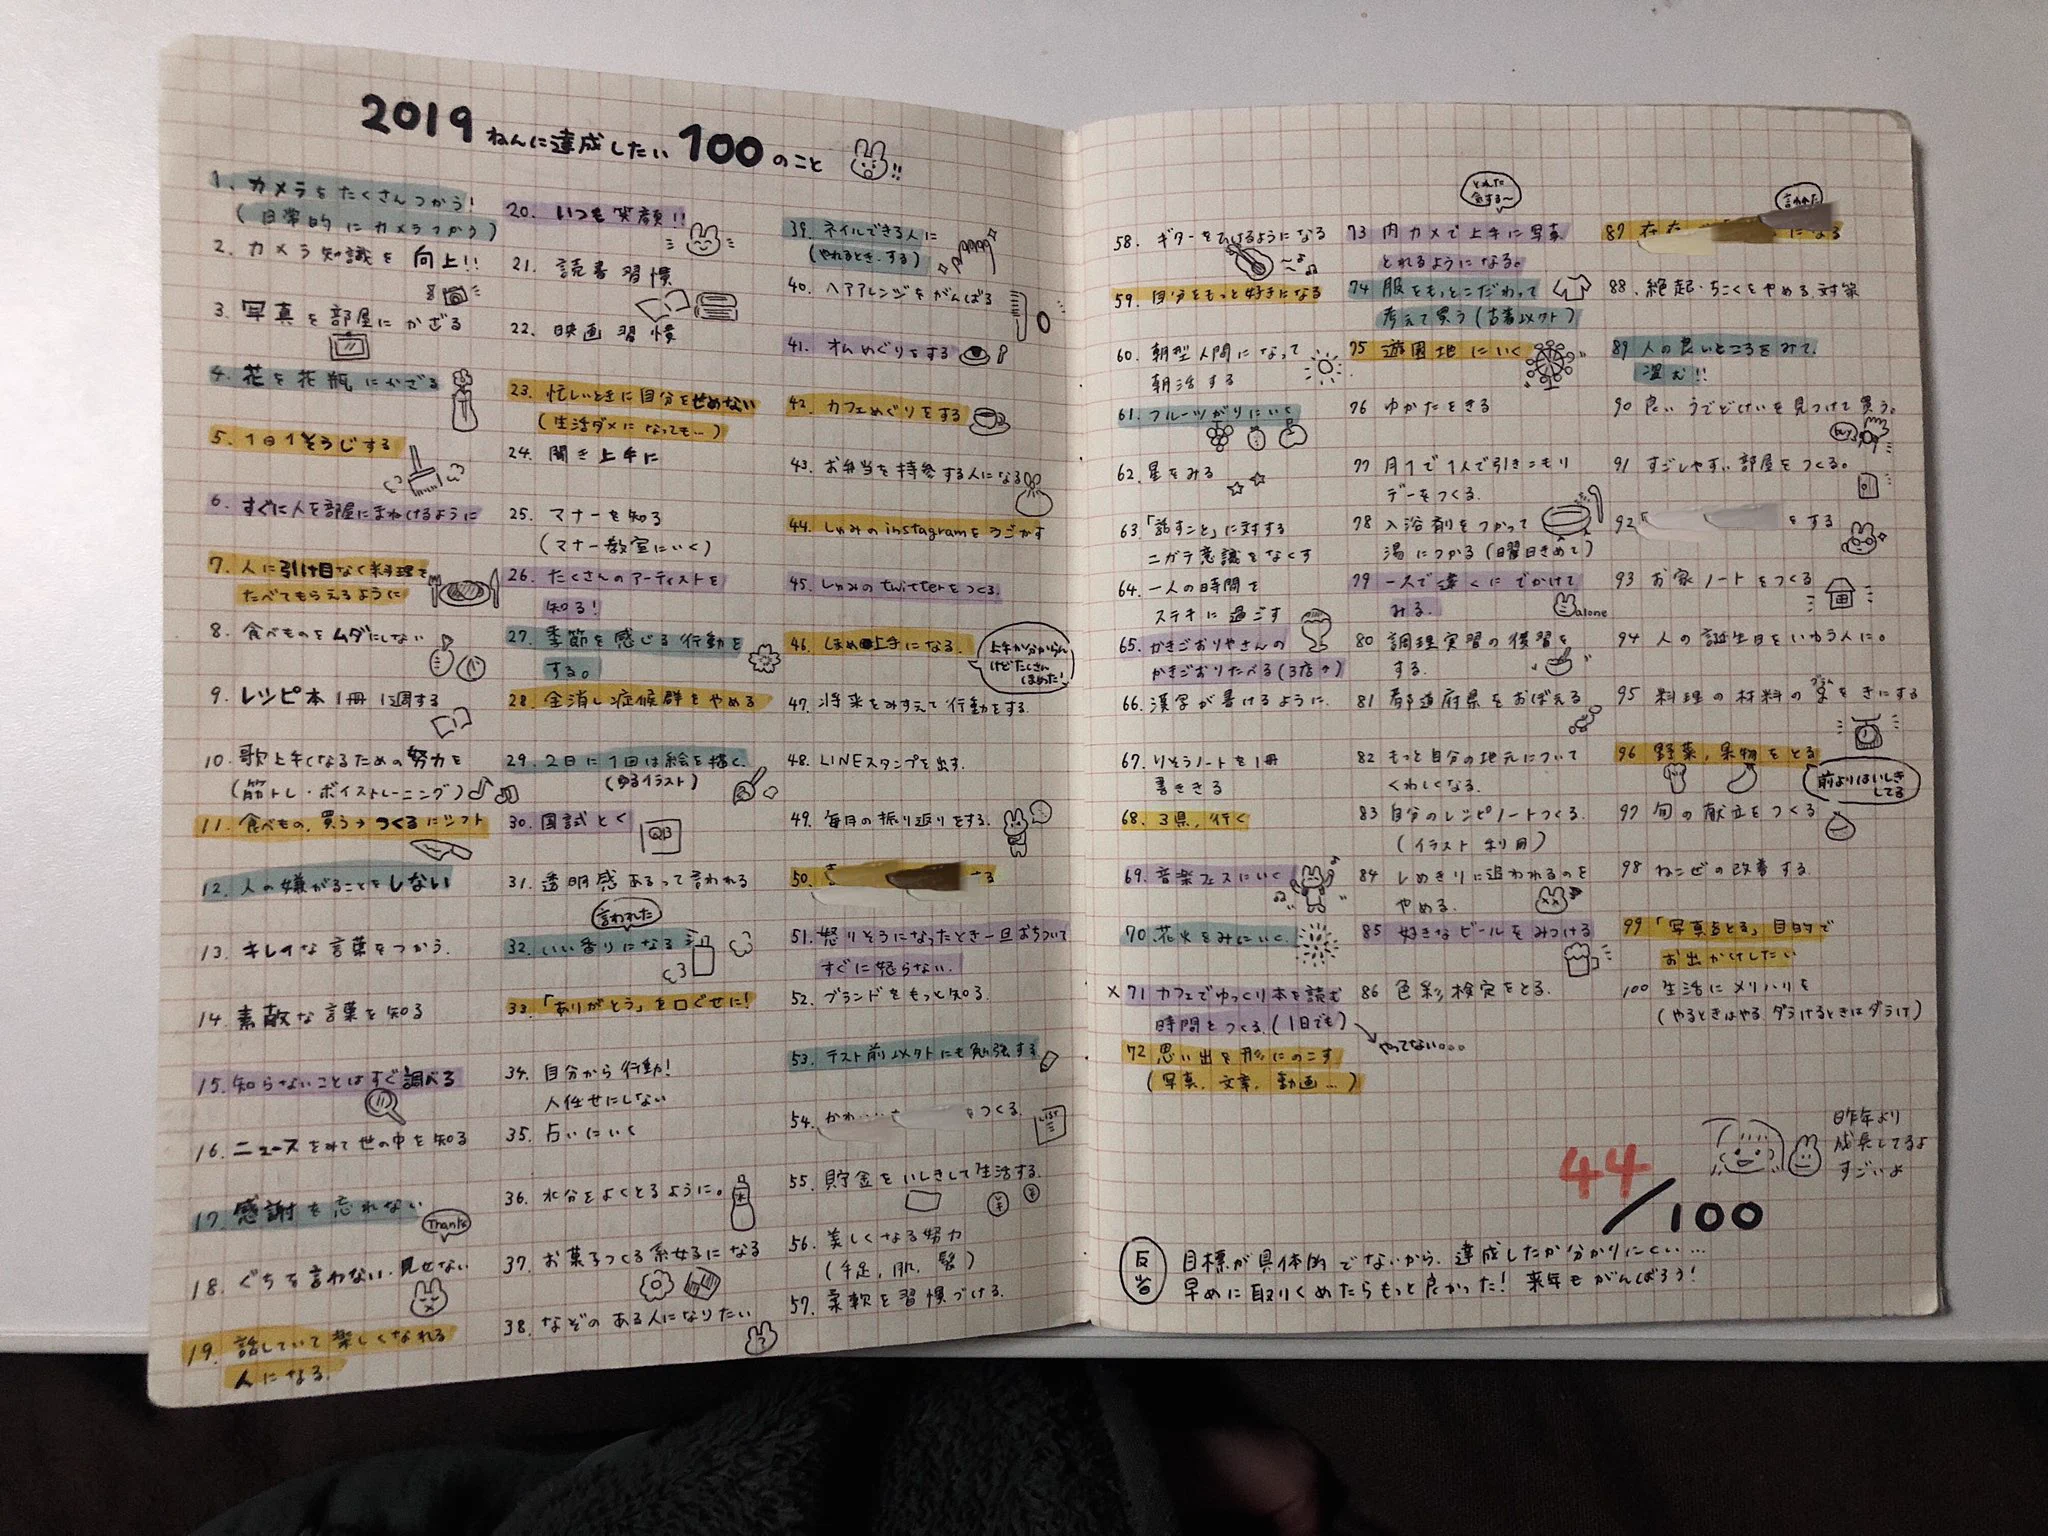 2019ねんに達成したい100のこと!!
1. カメラをたくさんつかう!
(日常的にカメラつかう)
2. カメラ知識を向上!!
3. 写真を部屋にかざる
4. 花を花瓶にかざる
5. 1日1そうじする
6. すぐに人を部屋にまねけるように
7. 人に引け目なく料理を
たべてもらえるように
8. 食べものをムダにしない
9. レシピ本1冊1周する
10. 歌上手くなるための努力を
(筋トレ・ボイストレーニング)
11. 食べもの、買う→つくるにシフト
12. 人の嫌がることをしない
13. キレイな言葉をつかう.
14. 素敵な言葉を知る
15. 知らないことはすぐ調べる
16. ニュースをみて世の中を知る
17. 感謝を忘れない
Thanks
18. ぐちを言わない・見せない
19. 話していて楽しくなれる
人になる.
20. いつも笑顔!!
21. 読書習慣
22. 映画習慣
23. 忙しいときに自分をせめない
(生活ダメになっても…)
24. 聞き上手に
25. マナーを知る
(マナー教室にいく)
26. たくさんのアーティストを
知る!
27. 季節を感じる行動を
する。
28. 全消し症候群をやめる
29. 2日に1回は絵を描く.
(ゆるイラスト)
30. 国試とく
QB
31. 透明感あるって言われる
言われた
32. いい香りになる
33. 「ありがとう」を口ぐせに!
34. 自分から行動!
人任せにしない
35. 占いにいく
36. 水分をよくとるように。
37. お菓子つくる系女子になる
38. なぞのある人になりたい
39. ネイルできる人に
(やれるとき.する)
40. ヘアアレンジをがんばる
41. オムめぐりをする
42. カフェめぐりをする
43. お弁当を持参する人になる
44. しゅみのinstagramをうごかす
45. しゅみのtwitterをつくる.
46. ほめ上手になる.
上手か分からん
けどたくさん
ほめた!
47. 将来をみすえて行動をする.
48. LINEスタンプを出す.
49. 毎月の振り返りをする.
50.
51. 怒りそうになったとき一旦おちついて
すぐに怒らない.
52. ブランドをもっと知る.
53. テスト前以外にも勉強する
54. かわ をつくる.
LIST
55. 貯金をいしきして生活する.
56. 美しくなる努力
(手足, 肌, 髪)
57. 柔軟を習慣づける.
58. ギターをひけるようになる
59. 自分をもっと好きになる
60. 朝型人間になって
朝活する
61. フルーツがりにいく
62. 星をみる
63 「話すこと」に対する
ニガテ意識をなくす
64. 一人の時間を
ステキに過ごす
65. かきごおりやさんの
かきごおりたべる(3店↑)
66. 漢字が書けるように.
67. りそうノートを1冊
書ききる
68. 3県,行く
69. 音楽フェスにいく
70. 花火をみにいく.
×71 カフェでゆっくり本を読む
時間をつくる.(1日でも)
やってない。。。
72 思い出を形にのこす
(写真, 文章, 動画…)
とれた
気する〜
73 内カメで上手に写真
とれるようになる。
74 服をもっとこだわって
考えて買う(古着以外)
75 遊園地にいく
76 ゆかたをきる
77 月1で1人で引きこもり
デーをつくる.
78 入浴剤をつかって
湯につかる(日曜日きめて)
79 一人で遠くにでかけて
みる.
alone
80 調理実習の復習を
する.
81 都道府県をおぼえる
82 もっと自分の地元について
くわしくなる.
83 自分のレシピノートつくる.
(イラスト利用)
84 しめきりに追われるのを
やめる.
85 好きなビールをみつける
86 色彩検定をとる.
言われた
87 になる
88. 絶起・ちこくをやめる.対策
89 人の良いところをみて.
盗む!!
90 良いうでどけいを見つけて買う。
buy
91 すごしやすい部屋をつくる。
92 をする
93 お家ノートをつくる
94 人の誕生日をいわう人に。
95 料理の材料のグラムをきにする
96 野菜,果物をとる
前よりはいしき
してる
97 旬の献立をつくる
98 ねこぜの改善する.
99 「写真をとる」目的で
お出かけしたい
100 生活にメリハリを
(やるときはやる.ダラけるときはダラけ)
44/100
昨年より
成長してるよ
すごいよ
反省
目標が具体的でないから, 達成したか分かりにくい…
早めに取りくめたらもっと良かった! 来年もがんばろう!